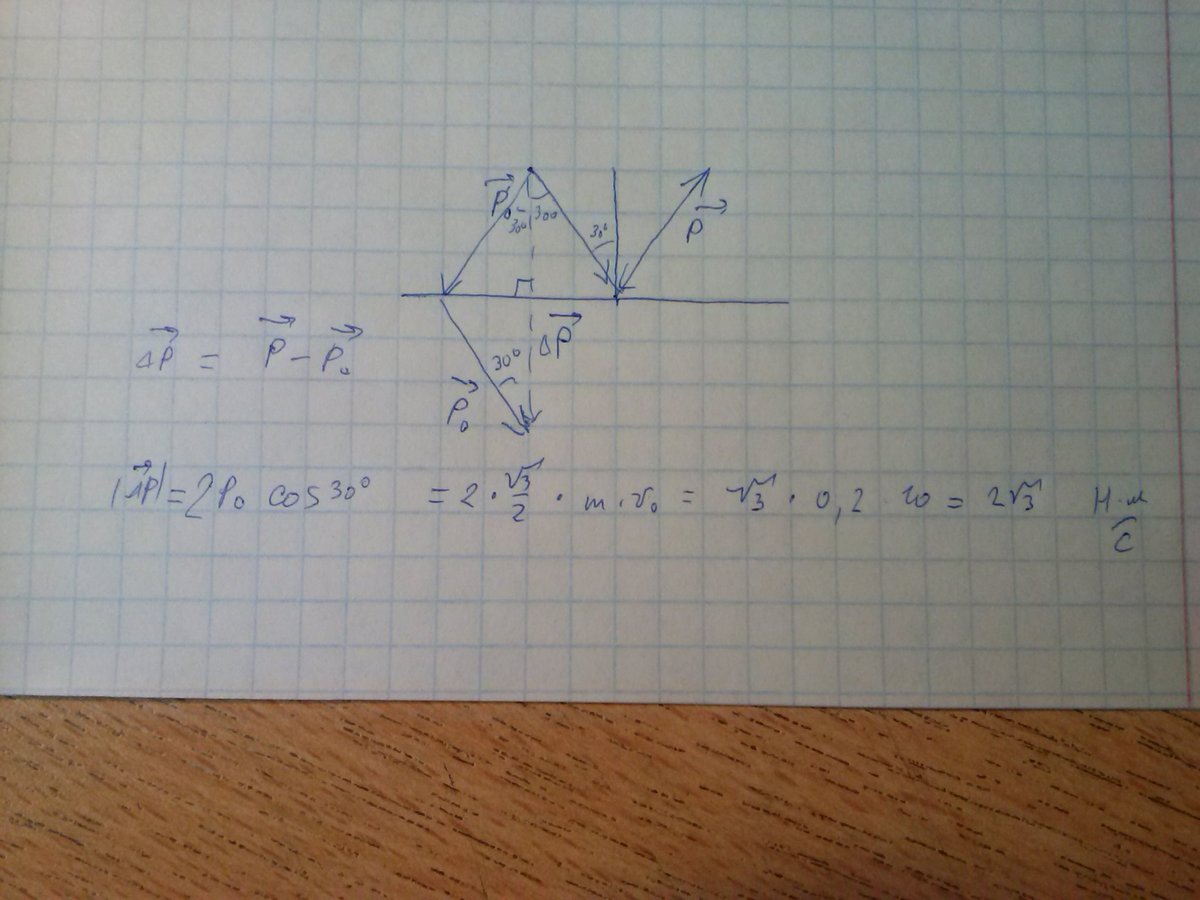 P₀ 30° 30° 30° P
ΔP = P − P₀
30° ΔP
P₀
|ΔP| = 2P₀ cos 30° = 2 · √3/2 · m · v₀ = √3 · 0,2 · 10 = 2√3 Н·м/с